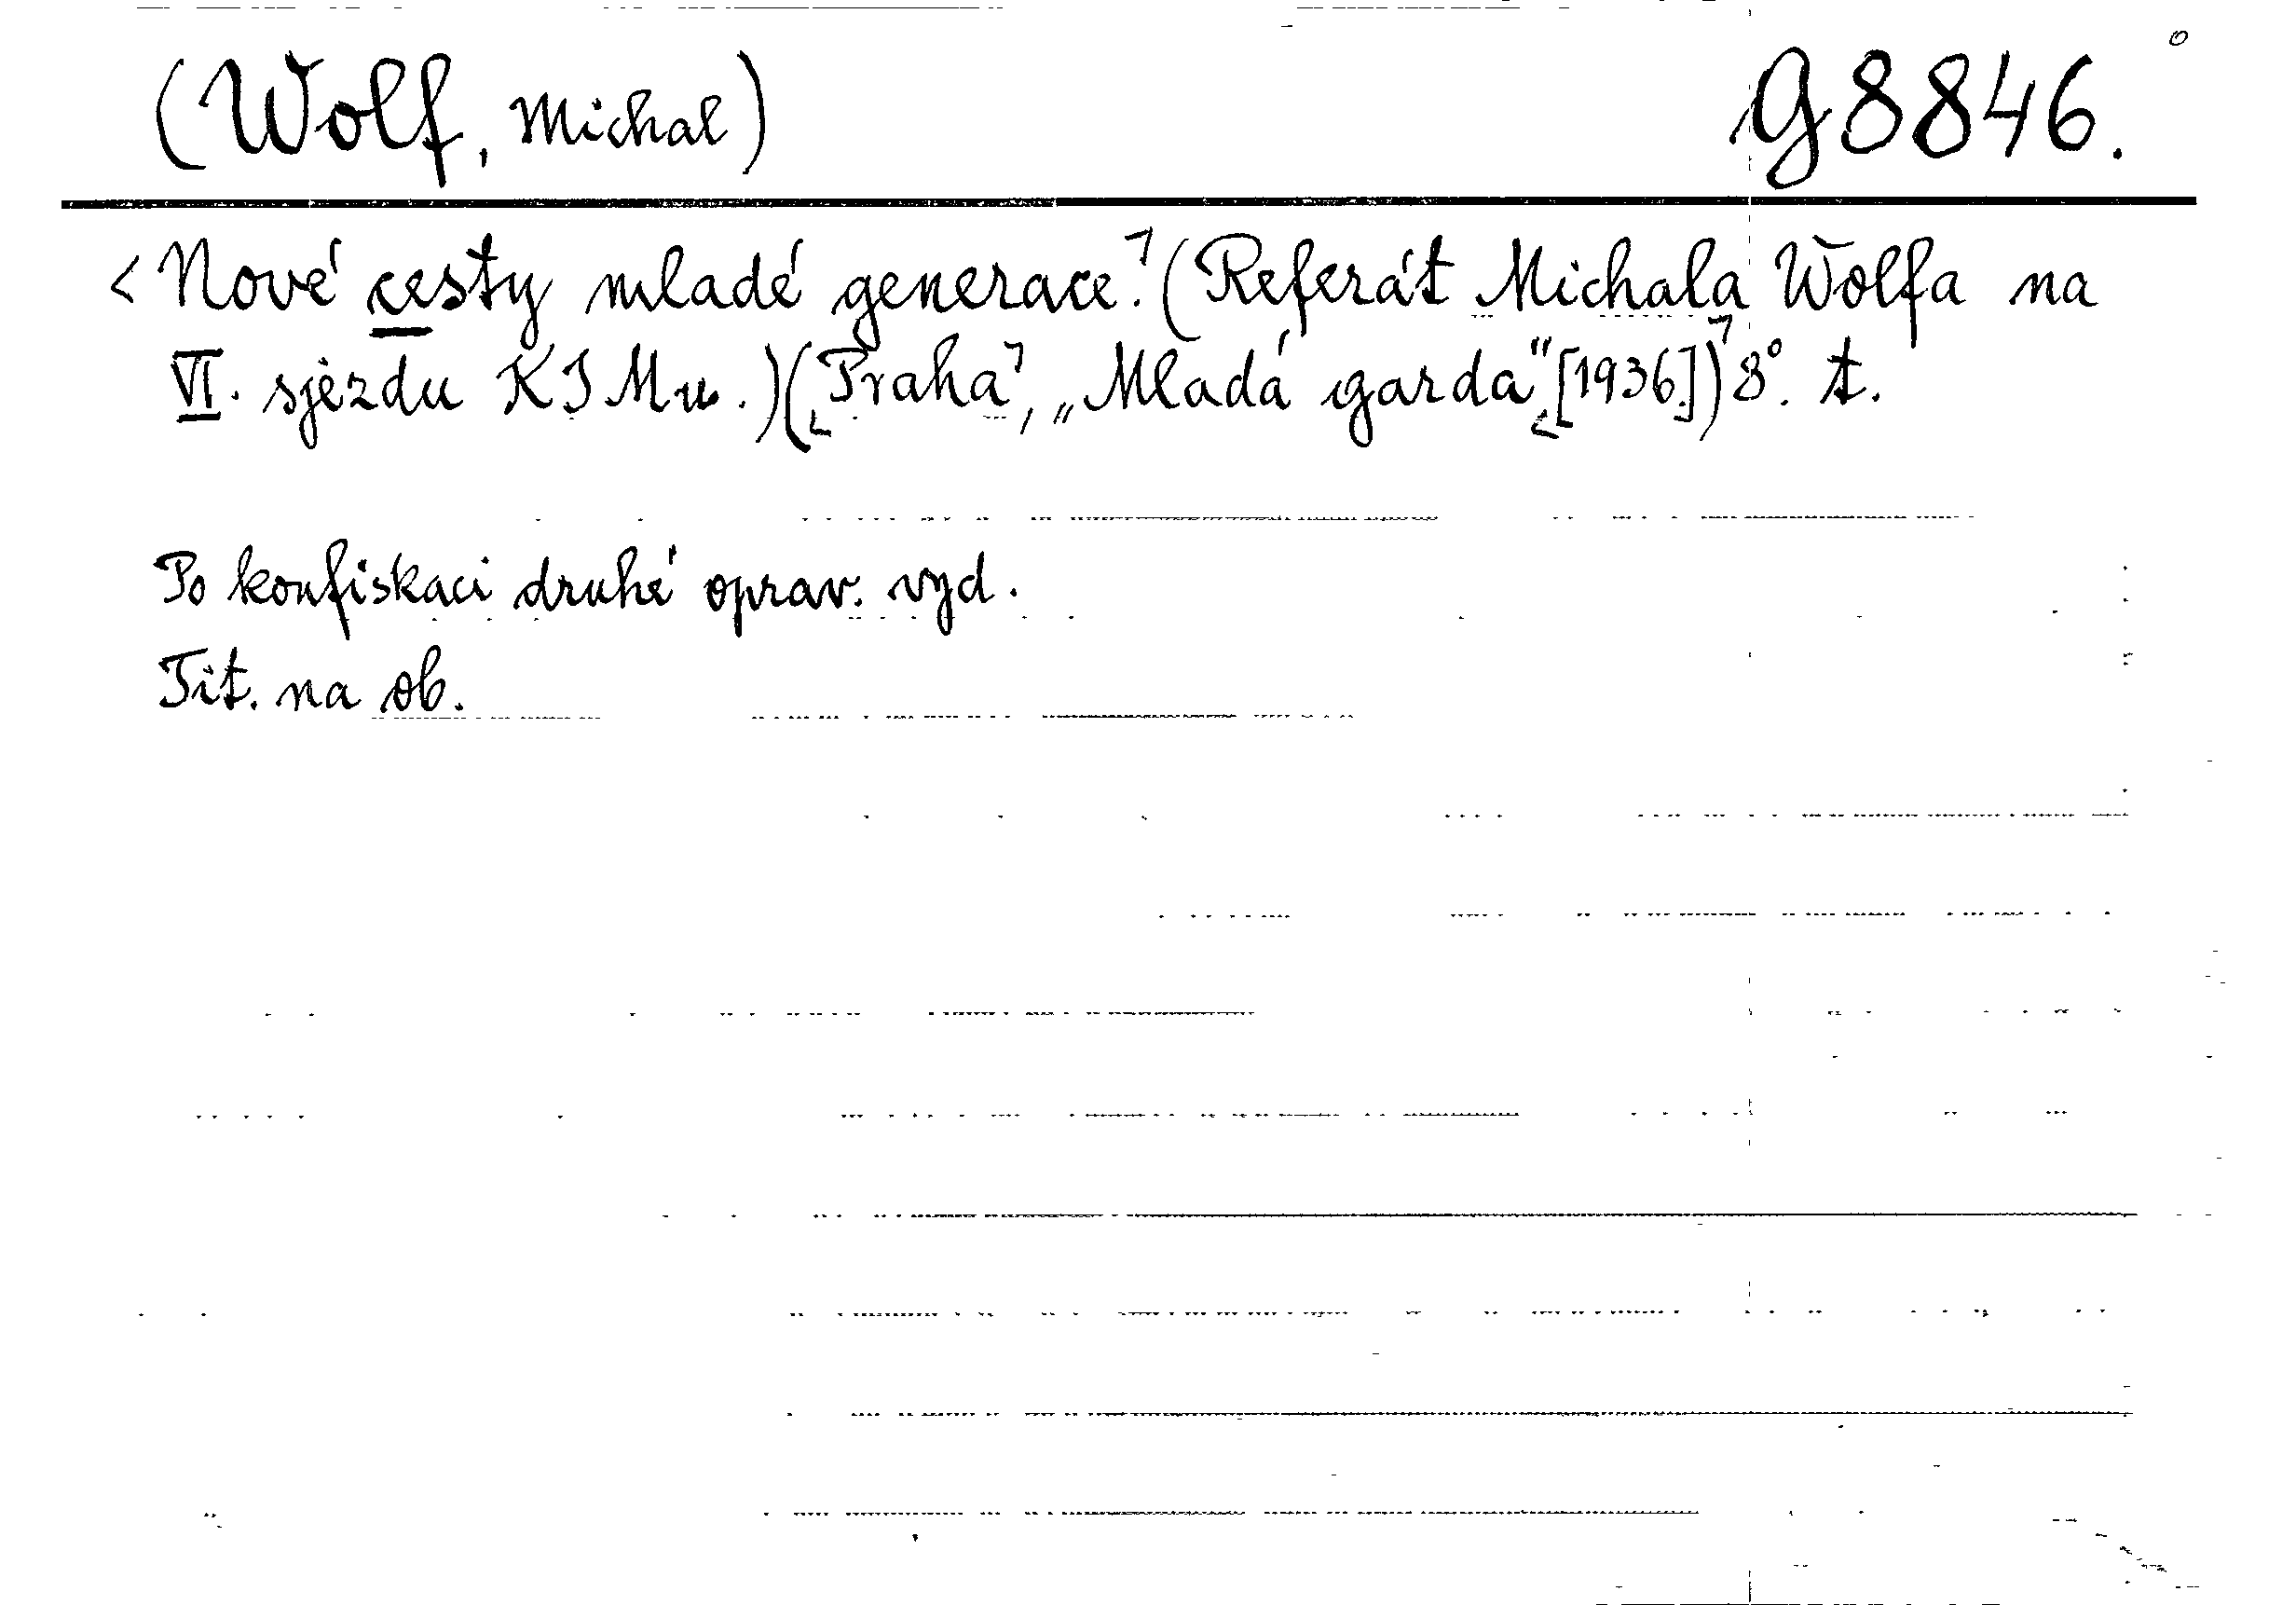 (Wolf, Michal) G 8846.
<Nové cesty mladé generace.⌝(Referát Michala Wolfa na
VI. sjezdu KSMu.)(⌞Praha⌝, „Mladá garda“⌞[1936])⌝8°. t.
Po konfiskaci druhé oprav. vyd.
Tit. na ob.